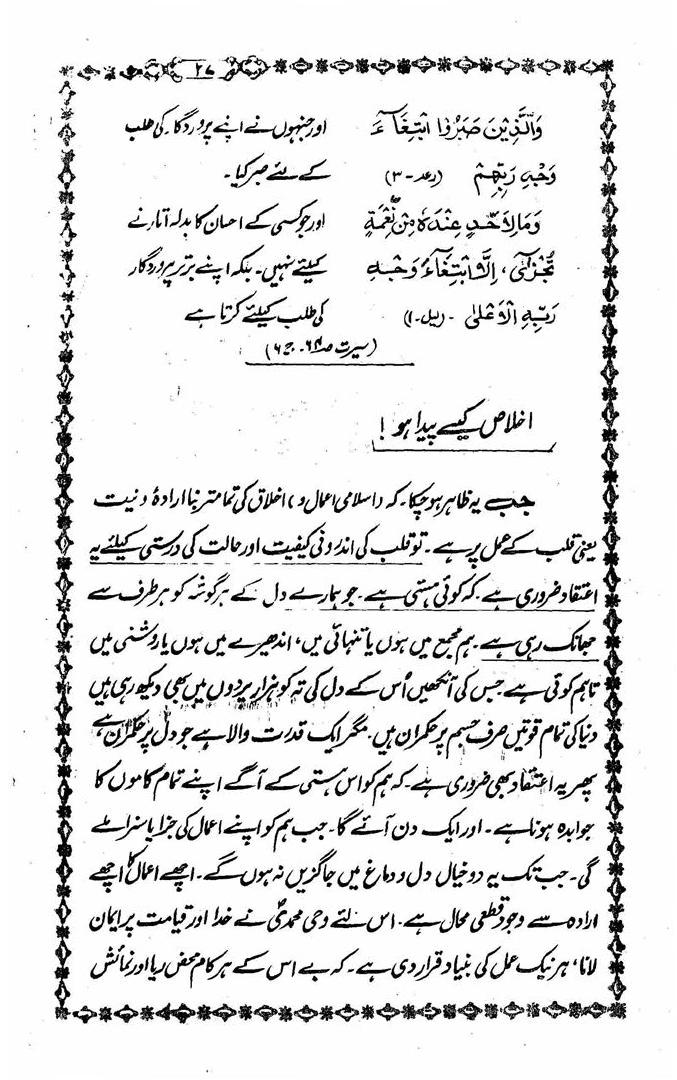 ۲۷
وَالَّذِیْنَ صَبَرُوا ابْتِغَآءَ اور جنہوں نے اپنے پروردگار کی طلب
وَجْهِ رَبِّهِمْ (رعد-۳) کے لئے صبر کیا۔
وَمَا لِاَحَدٍ عِنْدَهٗ مِنْ نِّعْمَةٍ اور جو کسی کے احسان کا بدلہ اتارنے
تُجْزٰٓی، اِلَّا ابْتِغَآءَ وَجْهِ کیلئے نہیں۔ بلکہ اپنے برتر پروردگار
رَبِّهِ الْاَعْلٰی۔ (لیل۔۱) کی طلب کیلئے کرتا ہے
(سیرت ص۶۴۔ ج۶)
اخلاص کیسے پیدا ہو!
جب یہ ظاہر ہو چکا۔ کہ (اسلامی اعمال و) اخلاق کی تمامتر بنا ارادۂ و نیت
یعنی قلب کے عمل پر ہے۔ تو قلب کی اندرونی کیفیت اور حالت کی درستی کیلئے یہ
اعتقاد ضروری ہے۔ کہ کوئی ہستی ہے۔ جو ہمارے دل کے ہر گوشہ کو ہر طرف سے
جھانک رہی ہے۔ ہم مجمع میں ہوں یا تنہائی میں، اندھیرے میں ہوں یا روشنی میں
تاہم کوئی ہے جس کی آنکھیں اُس کے دل کی تہ کو ہزار پردوں میں بھی دیکھ رہی ہیں
دنیا کی تمام قوتیں صرف جسم پر حکمران ہیں۔ مگر ایک قدرت والا ہے جو دل پر حکمران ہے،
پھر یہ اعتقاد بھی ضروری ہے۔ کہ ہم کو اس ہستی کے آگے اپنے تمام کاموں کا
جوابدہ ہونا ہے۔ اور ایک دن آئے گا۔ جب ہم کو اپنے اعمال کی جزا یا سزا ملے
گی۔ جب تک یہ دو خیال دل و دماغ میں جاگزیں نہ ہوں گے۔ اچھے اعمال کا اچھے
ارادہ سے وجود قطعی محال ہے۔ اس لئے وحی محمدیؐ نے خدا اور قیامت پر ایمان
لانا، ہر نیک عمل کی بنیاد قرار دی ہے۔ کہ بے اس کے ہر کام محض ریا اور نمائش